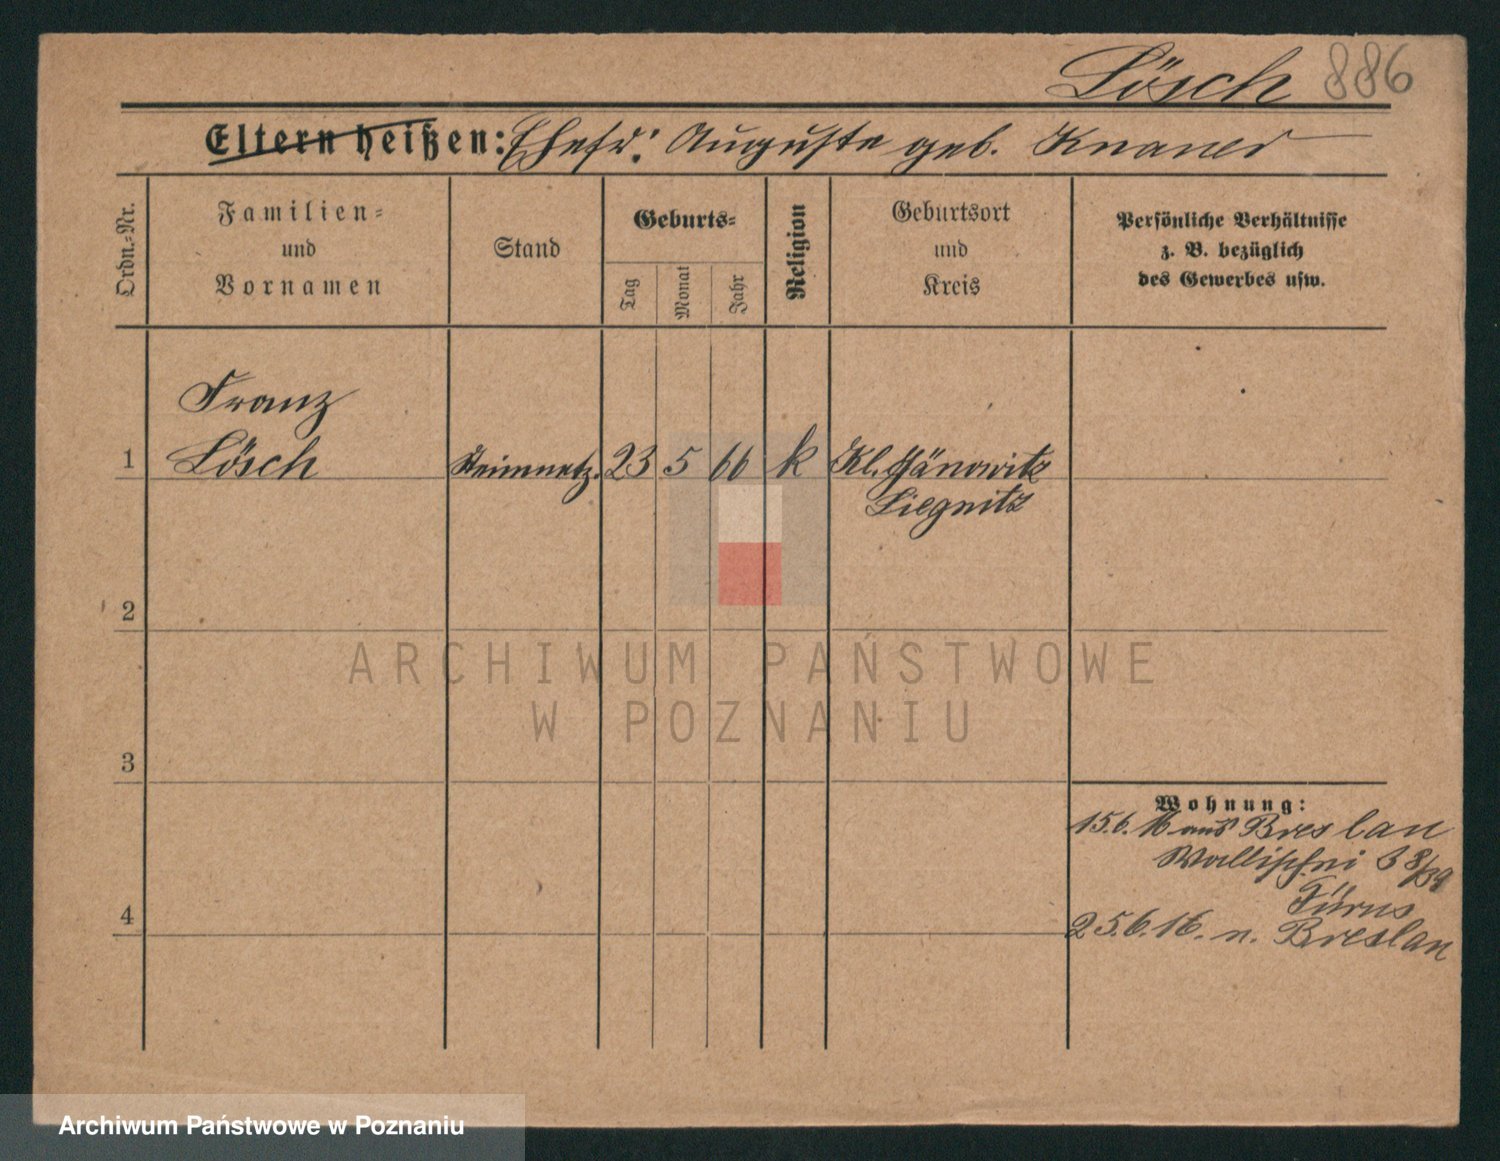 Lösch 886
Eltern heißen: Ehefr: Auguste geb. Knauer
Ordn.-Nr.
Familien-
und
Vornamen
Stand
Geburts-
Tag
Monat
Jahr
Religion
Geburtsort
und
Kreis
Persönliche Verhältnisse
z. B. bezüglich
des Gewerbes usw.
Franz
1 Lösch Steinmetz. 23 5 66 k Kl. Jänowitz
Liegnitz
2
3
4
ARCHIWUM PAŃSTWOWE
W POZNANIU
Wohnung:
15.6.16 aus Breslau
Wallischei 38/39
25.6.16. n. Breslau
Archiwum Państwowe w Poznaniu